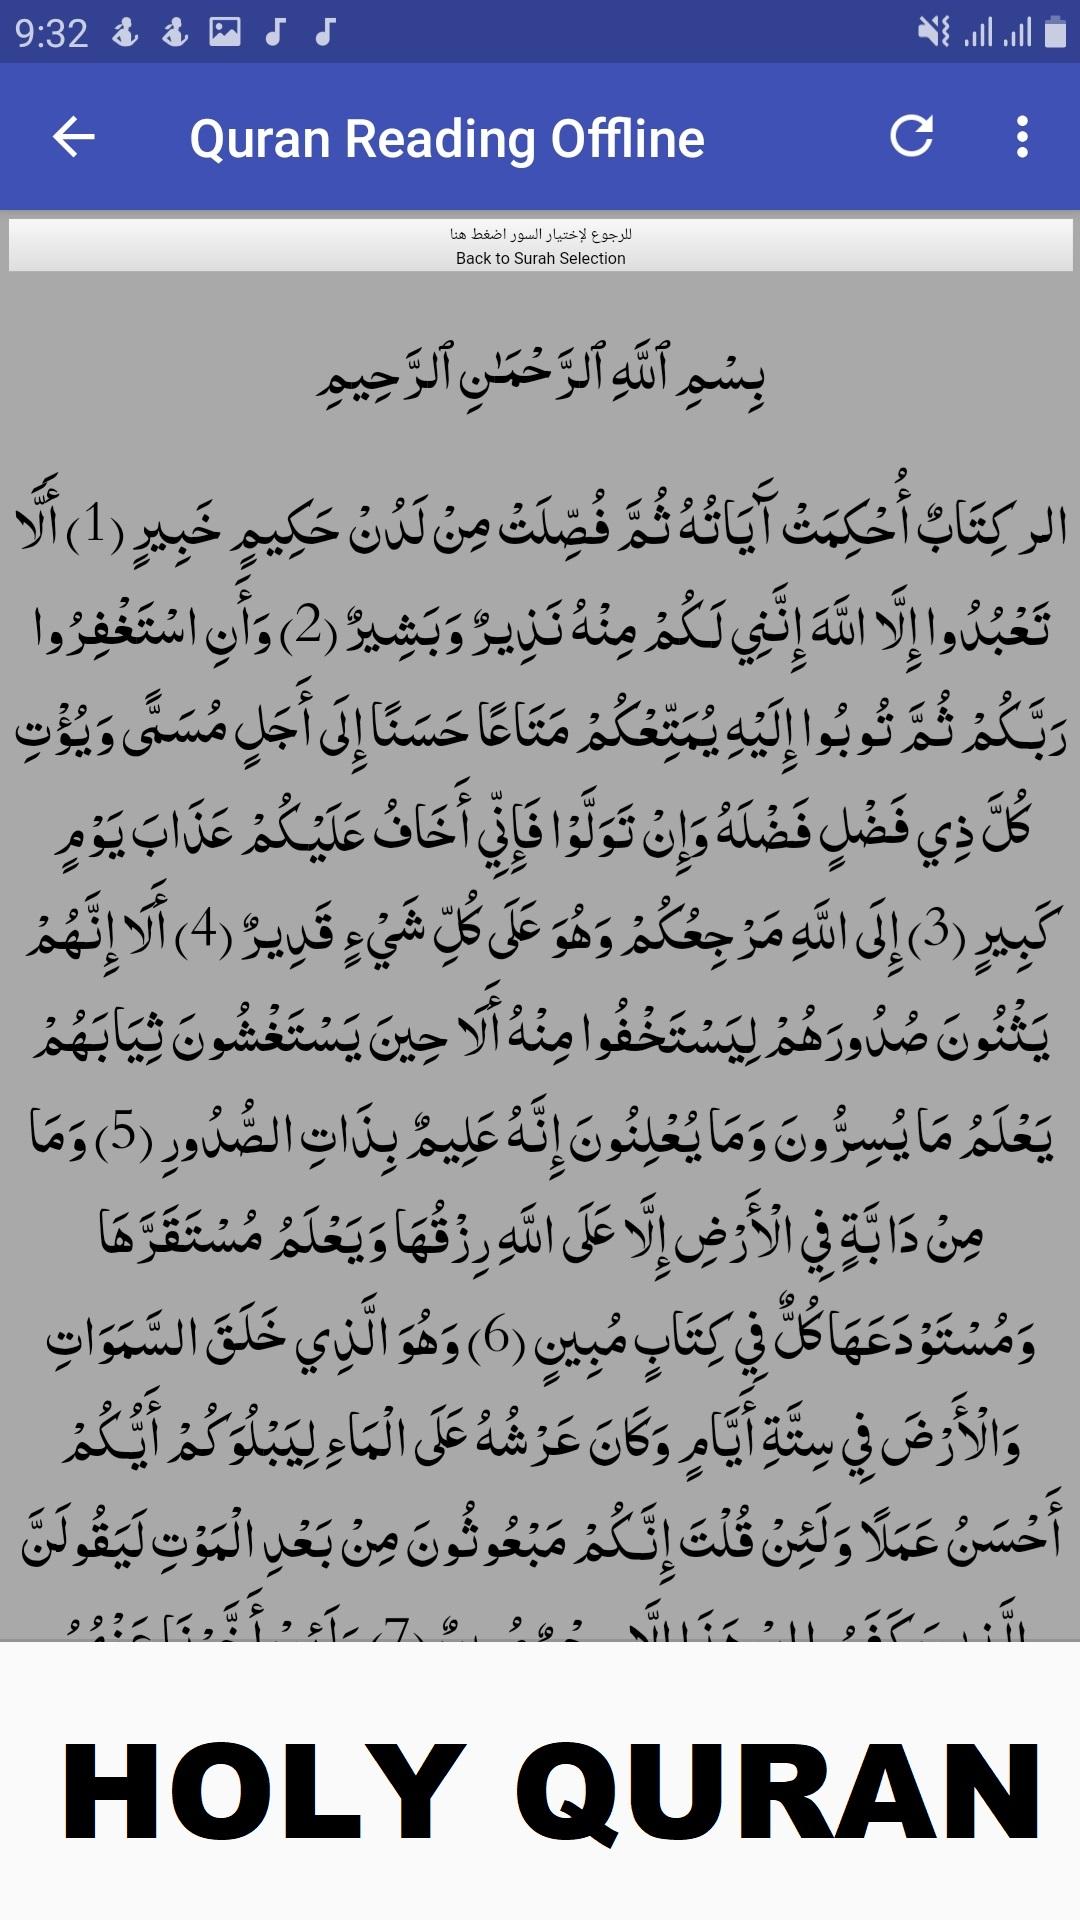 9:32
Quran Reading Offline
للرجوع لإختيار السور اضغط هنا
Back to Surah Selection
بِسْمِ ٱللَّهِ ٱلرَّحْمَٰنِ ٱلرَّحِيمِ
الر كِتَابٌ أُحْكِمَتْ آَيَاتُهُ ثُمَّ فُصِّلَتْ مِنْ لَدُنْ حَكِيمٍ خَبِيرٍ (1) أَلَّا
تَعْبُدُوا إِلَّا اللَّهَ إِنَّنِي لَكُمْ مِنْهُ نَذِيرٌ وَبَشِيرٌ (2) وَأَنِ اسْتَغْفِرُوا
رَبَّكُمْ ثُمَّ تُوبُوا إِلَيْهِ يُمَتِّعْكُمْ مَتَاعًا حَسَنًا إِلَى أَجَلٍ مُسَمًّى وَيُؤْتِ
كُلَّ ذِي فَضْلٍ فَضْلَهُ وَإِنْ تَوَلَّوْا فَإِنِّي أَخَافُ عَلَيْكُمْ عَذَابَ يَوْمٍ
كَبِيرٍ (3) إِلَى اللَّهِ مَرْجِعُكُمْ وَهُوَ عَلَى كُلِّ شَيْءٍ قَدِيرٌ (4) أَلَا إِنَّهُمْ
يَثْنُونَ صُدُورَهُمْ لِيَسْتَخْفُوا مِنْهُ أَلَا حِينَ يَسْتَغْشُونَ ثِيَابَهُمْ
يَعْلَمُ مَا يُسِرُّونَ وَمَا يُعْلِنُونَ إِنَّهُ عَلِيمٌ بِذَاتِ الصُّدُورِ (5) وَمَا
مِنْ دَابَّةٍ فِي الْأَرْضِ إِلَّا عَلَى اللَّهِ رِزْقُهَا وَيَعْلَمُ مُسْتَقَرَّهَا
وَمُسْتَوْدَعَهَا كُلٌّ فِي كِتَابٍ مُبِينٍ (6) وَهُوَ الَّذِي خَلَقَ السَّمَوَاتِ
وَالْأَرْضَ فِي سِتَّةِ أَيَّامٍ وَكَانَ عَرْشُهُ عَلَى الْمَاءِ لِيَبْلُوَكُمْ أَيُّكُمْ
أَحْسَنُ عَمَلًا وَلَئِنْ قُلْتَ إِنَّكُمْ مَبْعُوثُونَ مِنْ بَعْدِ الْمَوْتِ لَيَقُولَنَّ
HOLY QURAN